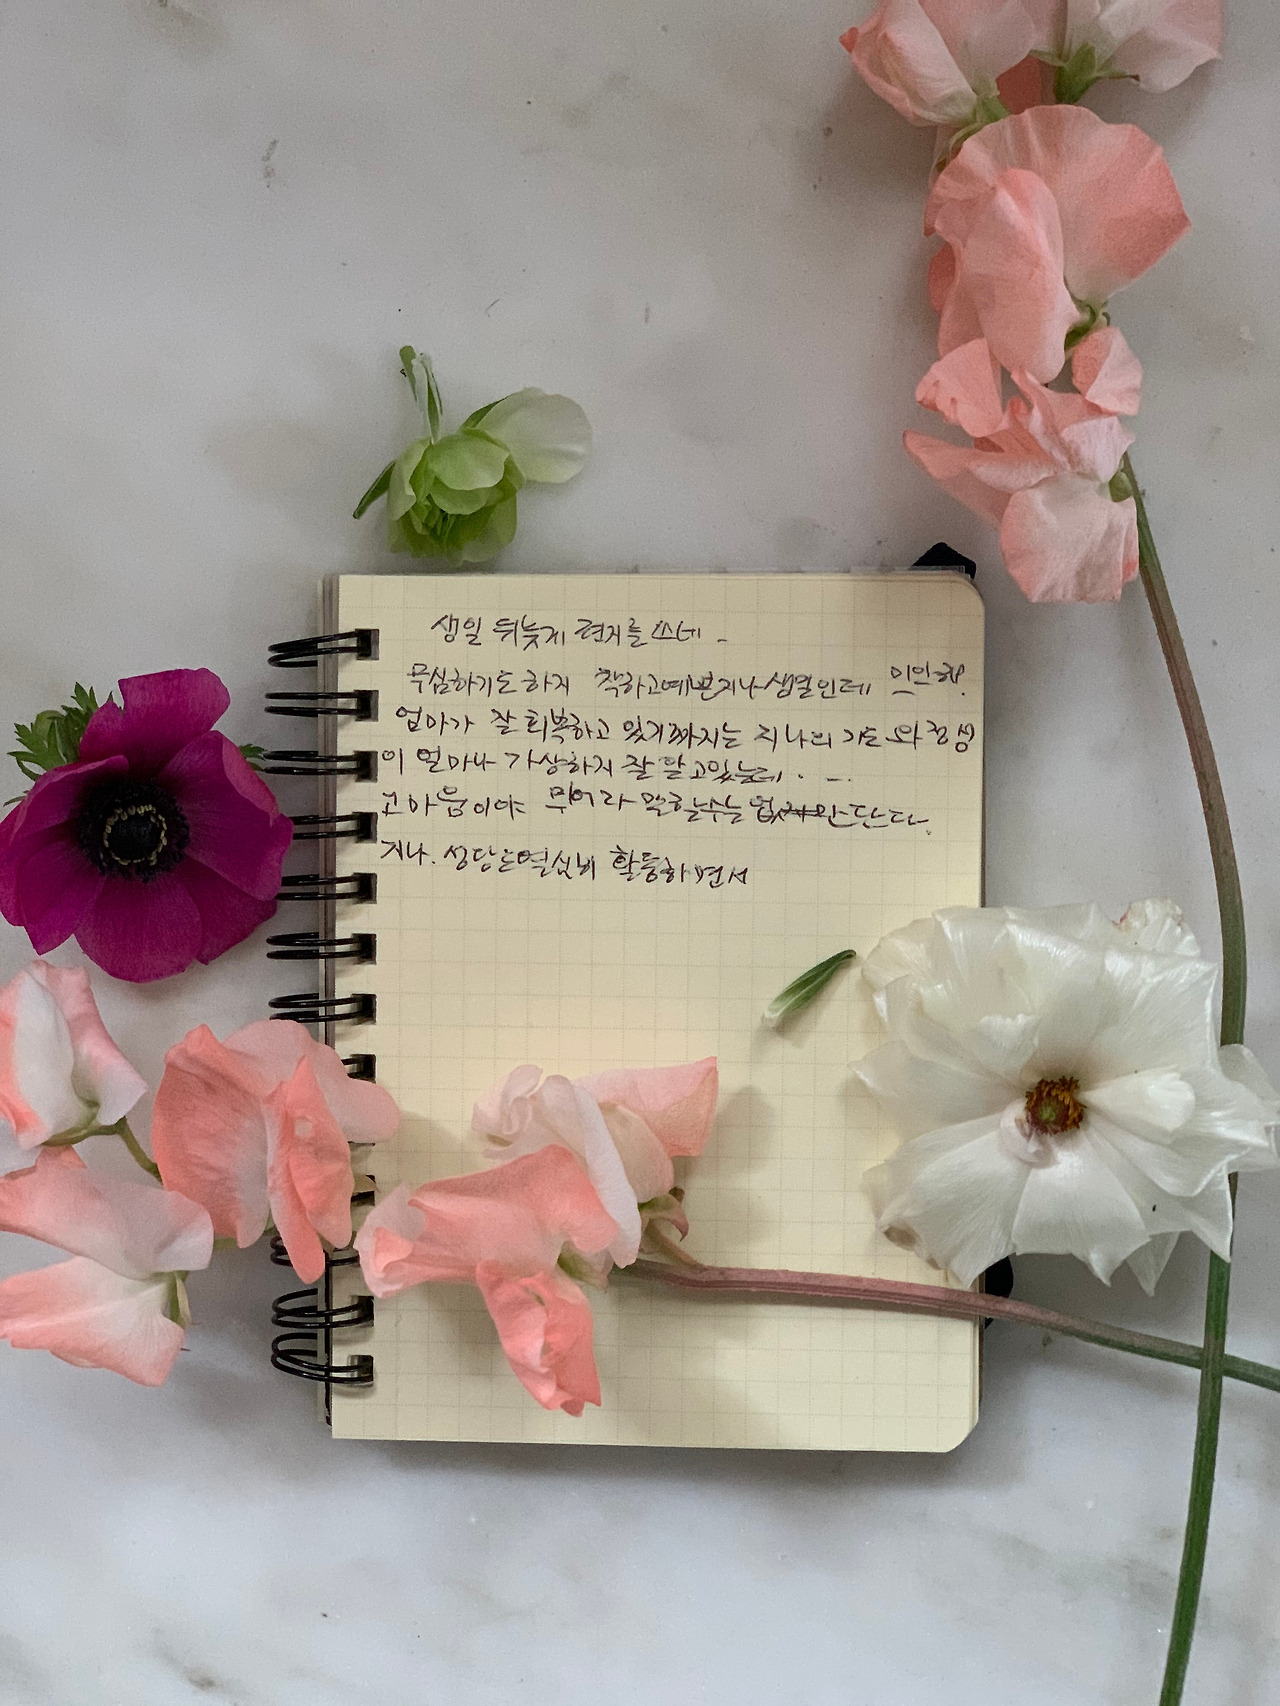 생일 뒤늦게 편지를 쓰네 -
무심하기도 하지 착하고 예쁜 지나 생일인데 미안해.
엄마가 잘 회복하고 있기까지는 지나의 기도와 정성
이 얼마나 가상한지 잘 알고 있는데 . -.
고마움이야 뭐어라 말할 수는 없 단다.
지나. 성당은 열심히 활동하면서